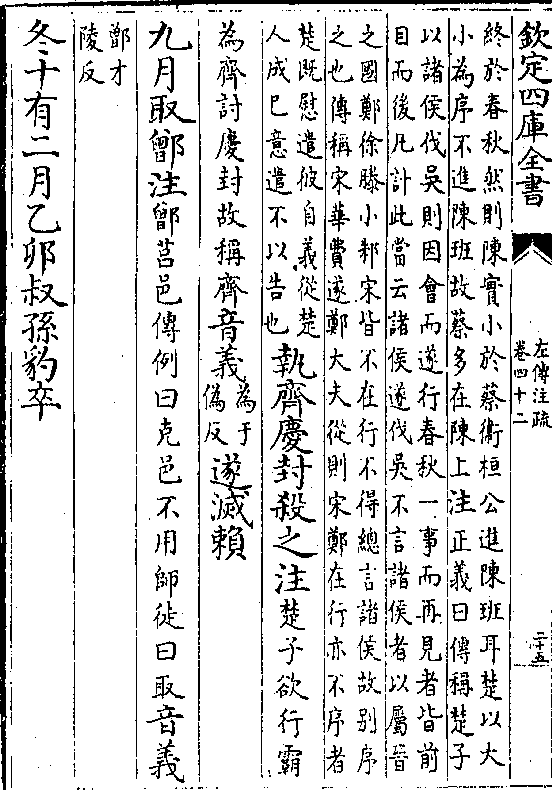 欽定四庫全書
左傳注疏
卷四十二
二十五
終於春秋然則陳實小於蔡衛桓公進陳班耳楚以大
小為序不進陳班故蔡多在陳上注正義曰傳稱楚子
以諸侯伐吳則因會而遂行春秋一事而再見者皆前
目而後凡計此當云諸侯遂伐吳不言諸侯者以屬晉
之國鄭徐滕小邾宋皆不在行不得總言諸侯故別序
之也傳稱宋華費遂鄭大夫從則宋鄭在行亦不序者
楚既慰遣彼自義從楚
人成已意遣不以告也
執齊慶封殺之注楚子欲行霸
為齊討慶封故稱齊音義
為于
偽反
遂滅賴
九月取鄫注鄫莒邑傳例曰克邑不用師徒曰取音義
鄫才
陵反
冬十有二月乙卯叔孫豹卒